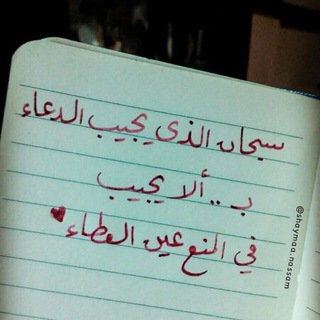 سبحان الذي يجيب الدعاء
بـ .. ألا يجيب
في المنع عين العطاء
@shaymaa.nassam